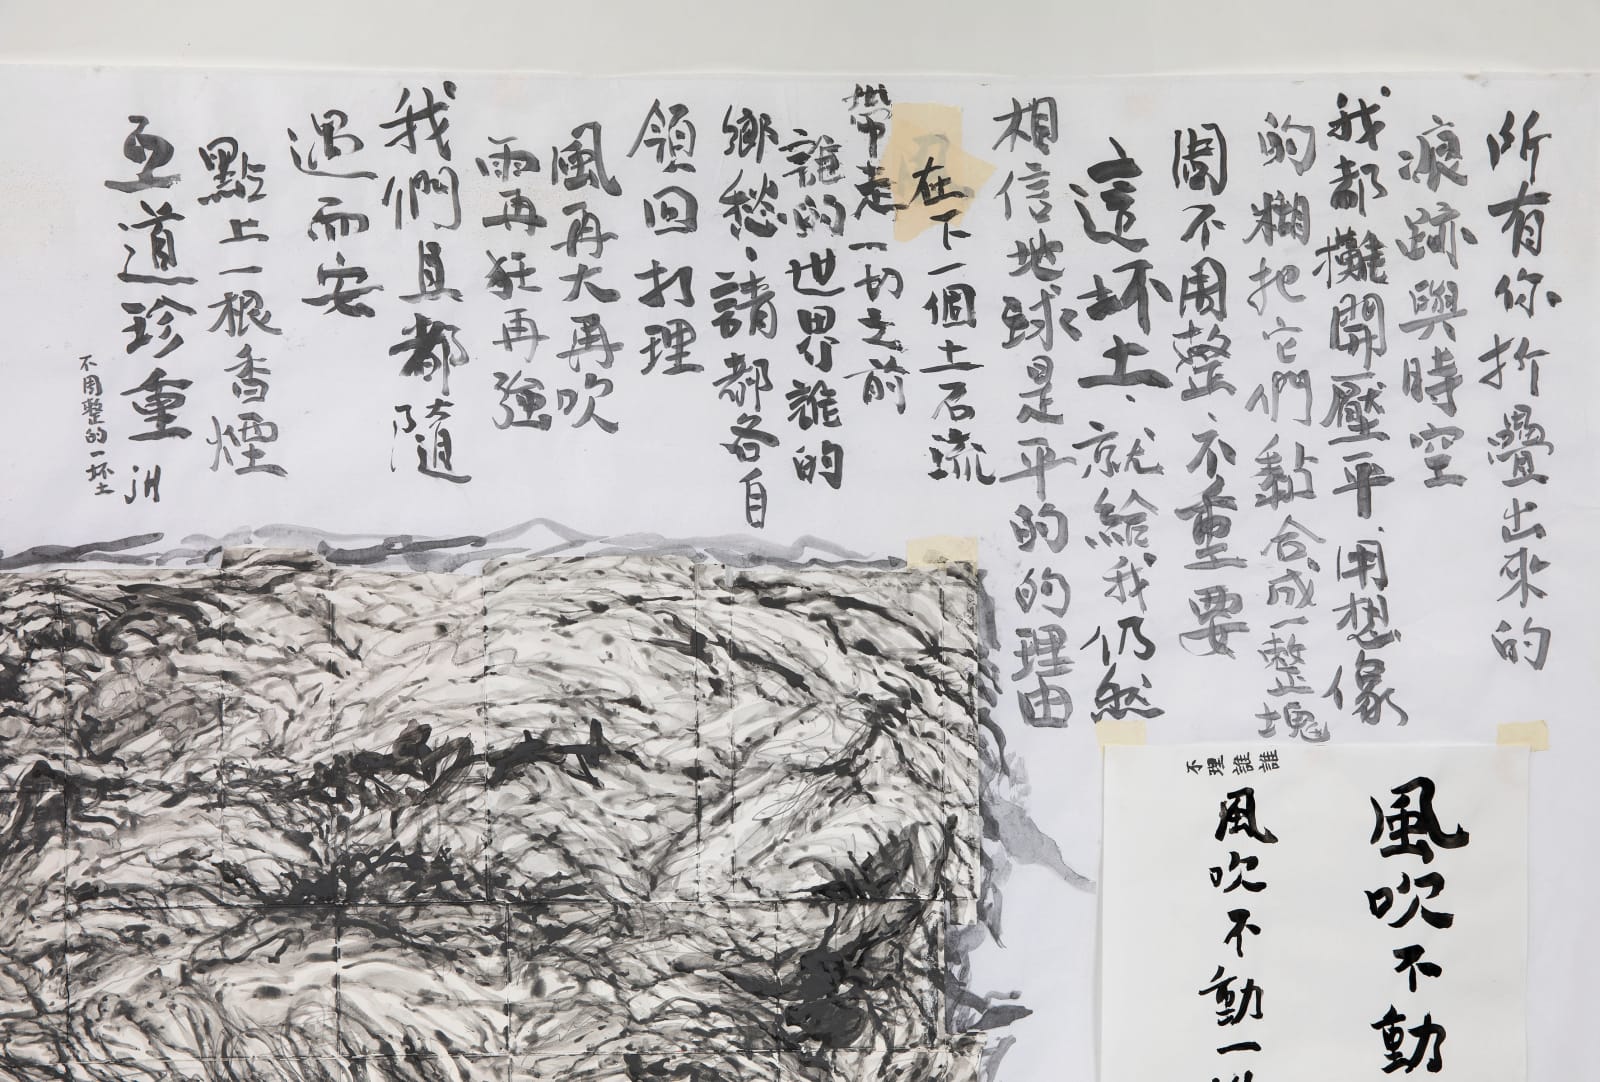 所有你折疊出來的
痕跡與時空
我都攤開壓平、用想像
的糊把它們黏合成一整塊
周不周整、不重要
這坏土、就給我仍然
相信地球是平的的理由
在下一個土石流
帶走一切之前
誰的世界誰的
鄉愁、請都各自
領回打理
風再大再吹
雨再狂再強
我們且都隨
遇而安
點上一根香煙
互道珍重
不周整的一坏土
風吹不動
不理誰誰
風吹不動一